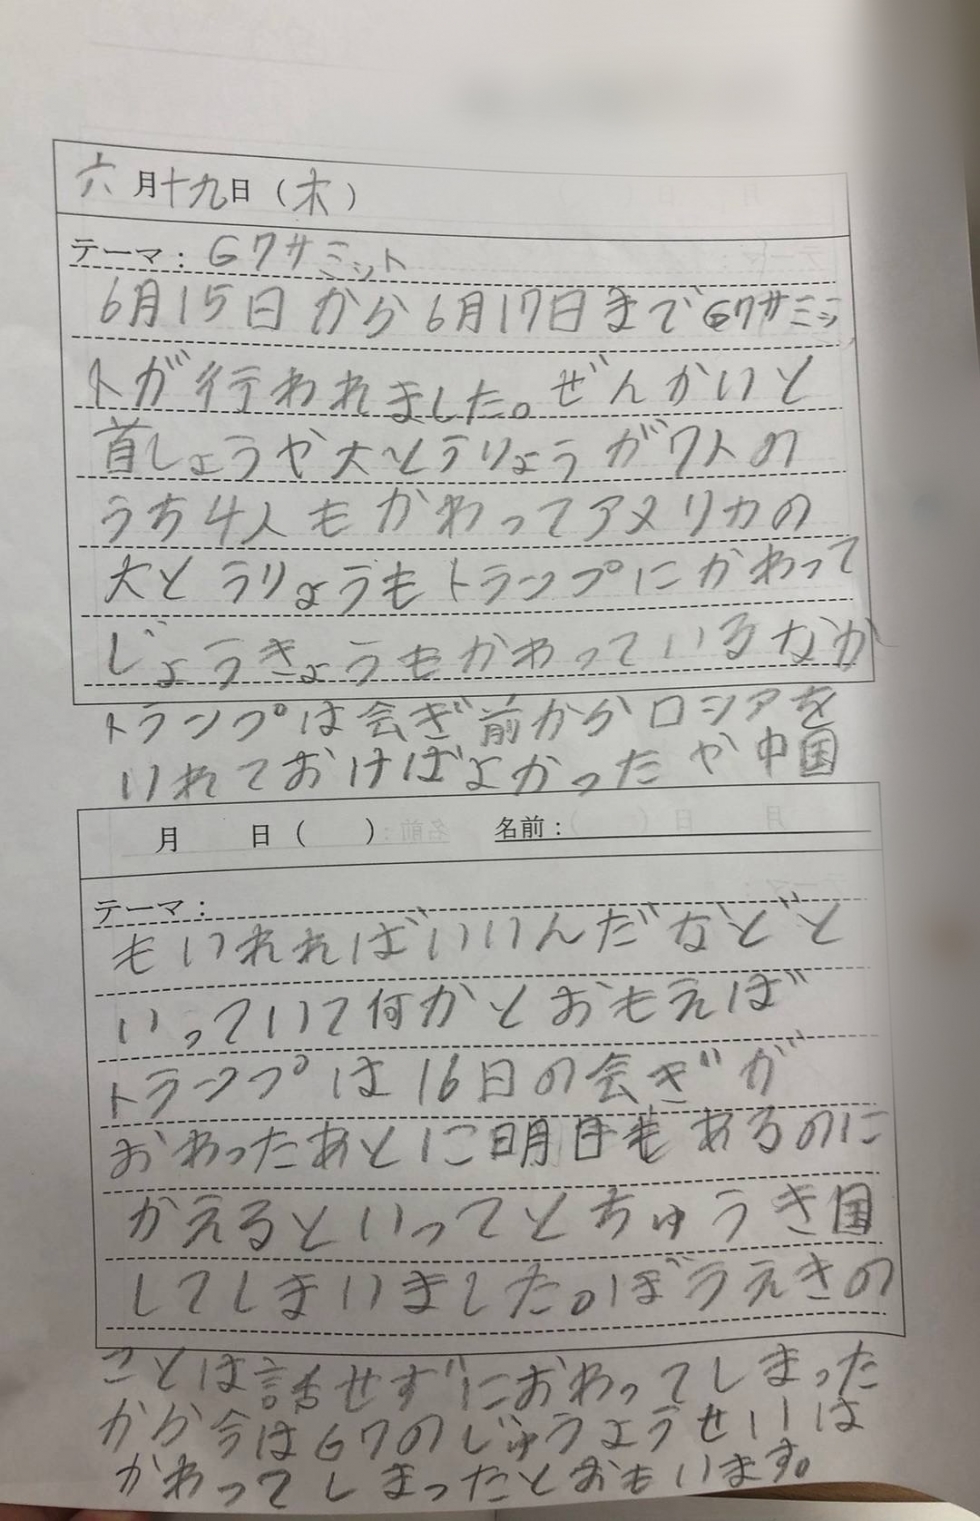 六月十九日（木）
テーマ：G7サミット
6月15日から6月17日までG7サミッ
トが行われました。ぜんかいと
首しょうや大とうりょうが7人の
うち4人もかわってアメリカの
大とうりょうもトランプにかわって
じょうきょうもかわっているなか
トランプは会ぎ前からロシアを
いれておけばよかったや中国
月　日（　）　名前：
テーマ：
もいれればいいんだなどと
いっていて何かとおもえば
トランプは16日の会ぎが
おわったあとに明日もあるのに
かえるといってとちゅうき国
してしまいました。ぼうえきの
ことは話せずにおわってしまった
から今はG7のじゅうようせいは
かわってしまったとおもいます。